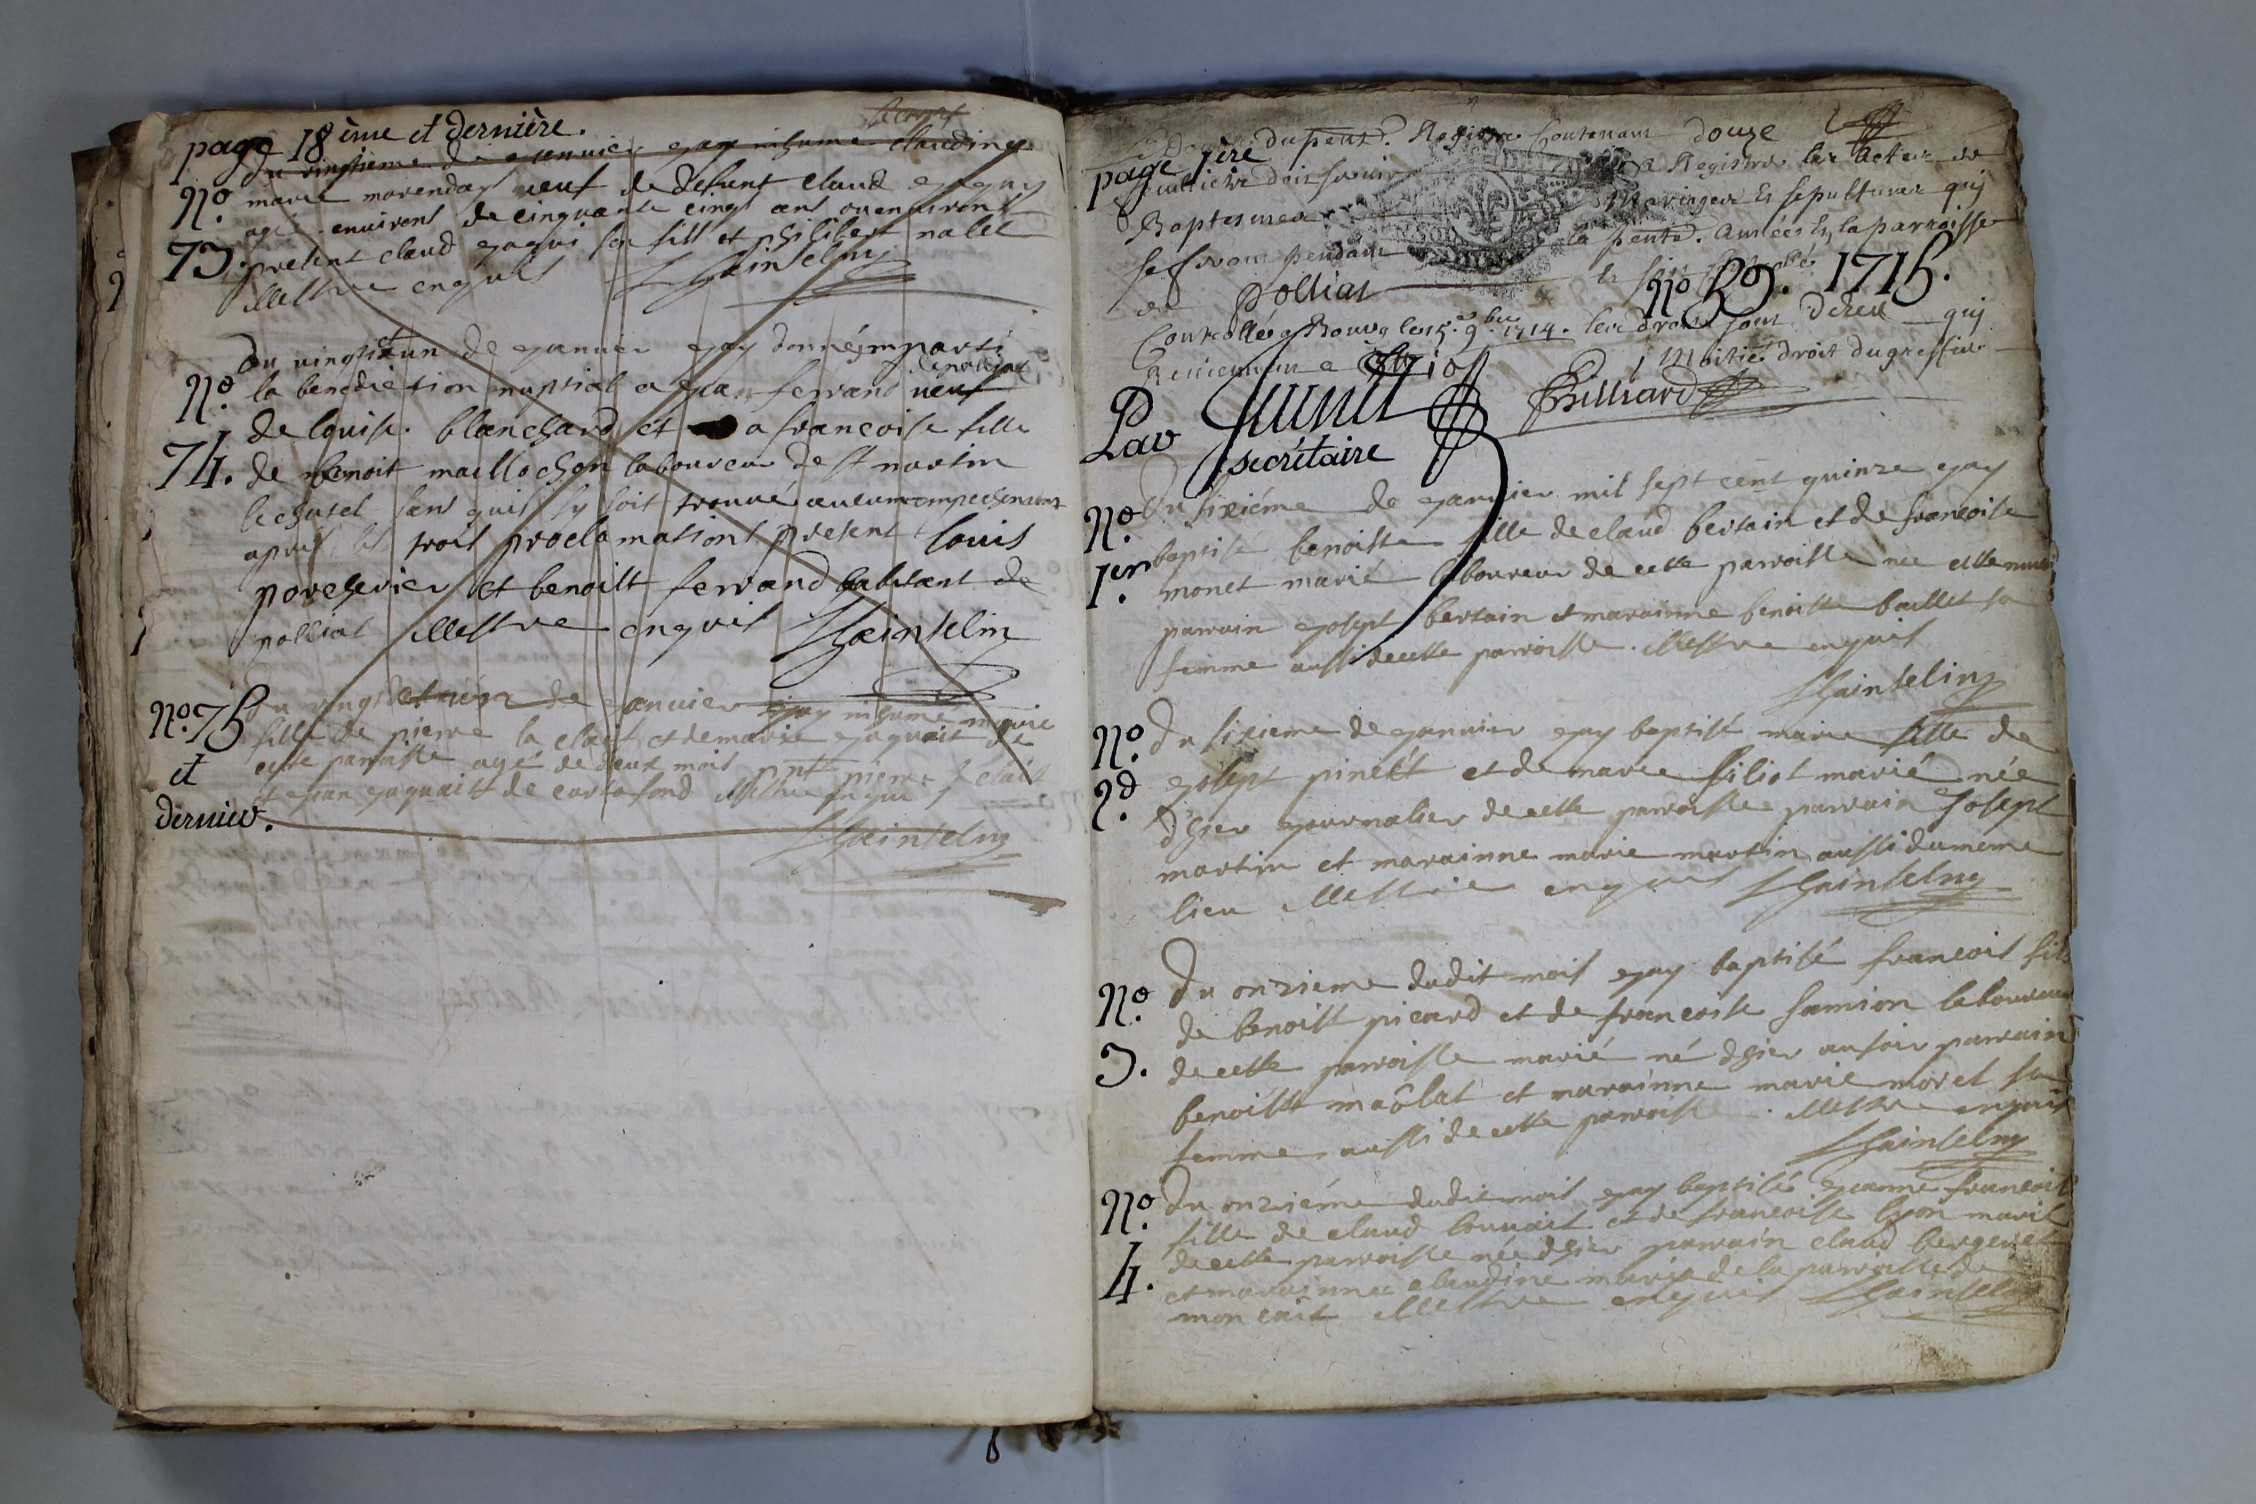 page 18ème et dernière.
second
du vingtieme de genvier gay inhume claudine
No. marie morenday veuf de defunt claud gaguy
agé environs de cinquante cinqt ans ou environt
73. present claud gagui son fill et philibert nalet
illettre enquis Hainselin
du vingt et un de ganvier gay donné imparti
No. la benediction nuptial a gean ferrand veuf
de polliat
de louise blanchard et a francoise fille
74. de benoit maillochon laboureur de st martin
le chatel sans quil sy soit trouvé aucun empechement
apres les trois proclamations present louis
porcherier et benoist ferrand habitant de
polliat illettre enquis Hainselin
No. 75 du vingt et un de ganvier gay inhumé marie
fille de pierre la clait et de marie gaguait de
et cette parroisse agé de deux mois pnt pierre clait
et gean gaguait de cortafond illettre enquis
dernier.
Hainselin
page 1ère du pent. Registre Contenant douze
feuilletz doit servir a Registrer les actes de
Baptesmes Mariages Et sepulturez qui
se feront pendant la pente. année En la parroisse
de Polliat
No 39. 1715.
Controllé a Bourg le 15e. 9bre 1714. les droits sont deheu qui
moitié droit du greffier
Par secrétaire
Billiard
No. Du sixiéme de ganvier mil sept cent quinze gay
1er. baptisé benoiste fille de claud bertain et de francoise
monet marié laboureur de cette parroisse née
parrain gosept bertain et marainne benoiste baillet sa
femme aussi de cette parroisse. illettre enquis
Hainselin
No. Du sixieme de ganvier gay baptisé marie fille de
2d. gosept pinet et de marie filiot marié née
dhier journalier de cette parroisse parrain Josept
martin et marainne marie martin aussi du meme
lieu illettre enquis Hainselin
No. Du onzieme dudit mois gay baptisé francois fils
de benoist picard et de francoise samion laboureur
3. de cette parroisse marié né dhier au soir parrain
benoist maôlat et marainne marie morel sa
femme aussi de cette parroisse. illettre enquis
Hainselin
No. Du onziéme dudit mois gay baptisé geanne francoise
fille de claud louvait et de francoise lyon marié
4. de cette parroisse née dhier parrain claud bergeret
et marainne claudine marie de la parroisse de
moncait illettre enquis Hainselin